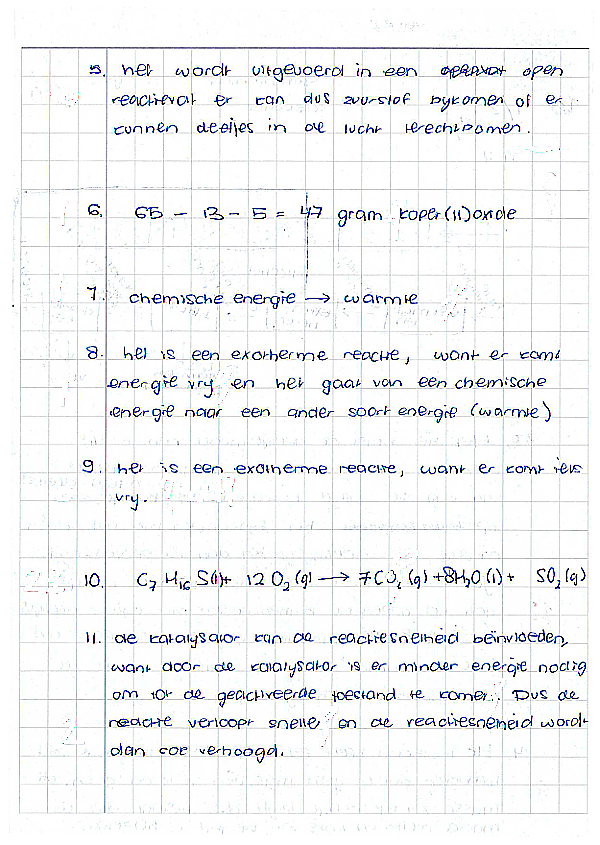 5. het wordt uitgevoerd in een open
reactievat er kan dus zuurstof bijkomen of er
kunnen deeltjes in de lucht terechtkomen.
6. 65 - 13 - 5 = 47 gram koper(II)oxide
7. chemische energie → warmte
8. het is een exotherme reactie, want er komt
energie vrij en het gaat van een chemische
energie naar een ander soort energie (warmte)
9. het is een exotherme reactie, want er komt iets
vrij.
10. C₇H₁₆S(l) + 12 O₂(g) → 7CO₂(g) + 8H₂O(l) + SO₂(g)
11. de katalysator kan de reactiesnelheid beïnvloeden,
want door de katalysator is er minder energie nodig
om tot de geactiveerde toestand te komen. Dus de
reactie verloopt sneller en de reactiesnelheid wordt
dan ook verhoogd.